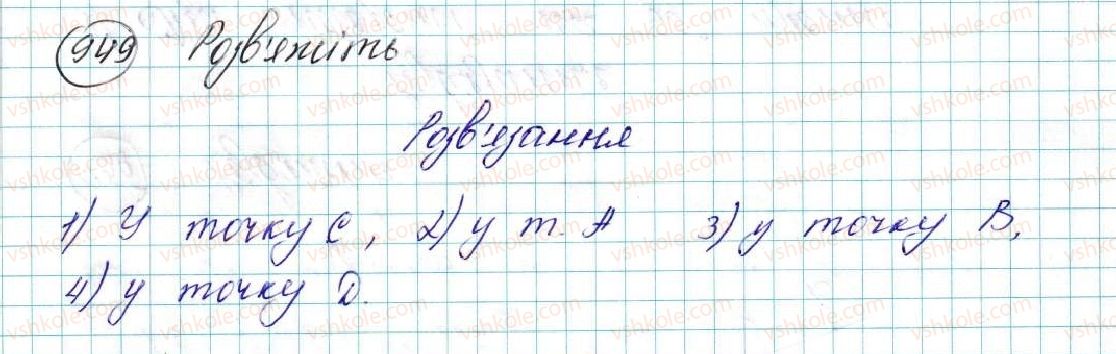 949 Розв'яжіть
Розв'язання
1) У точку С, 2) у т. А 3) у точку В,
4) у точку D.